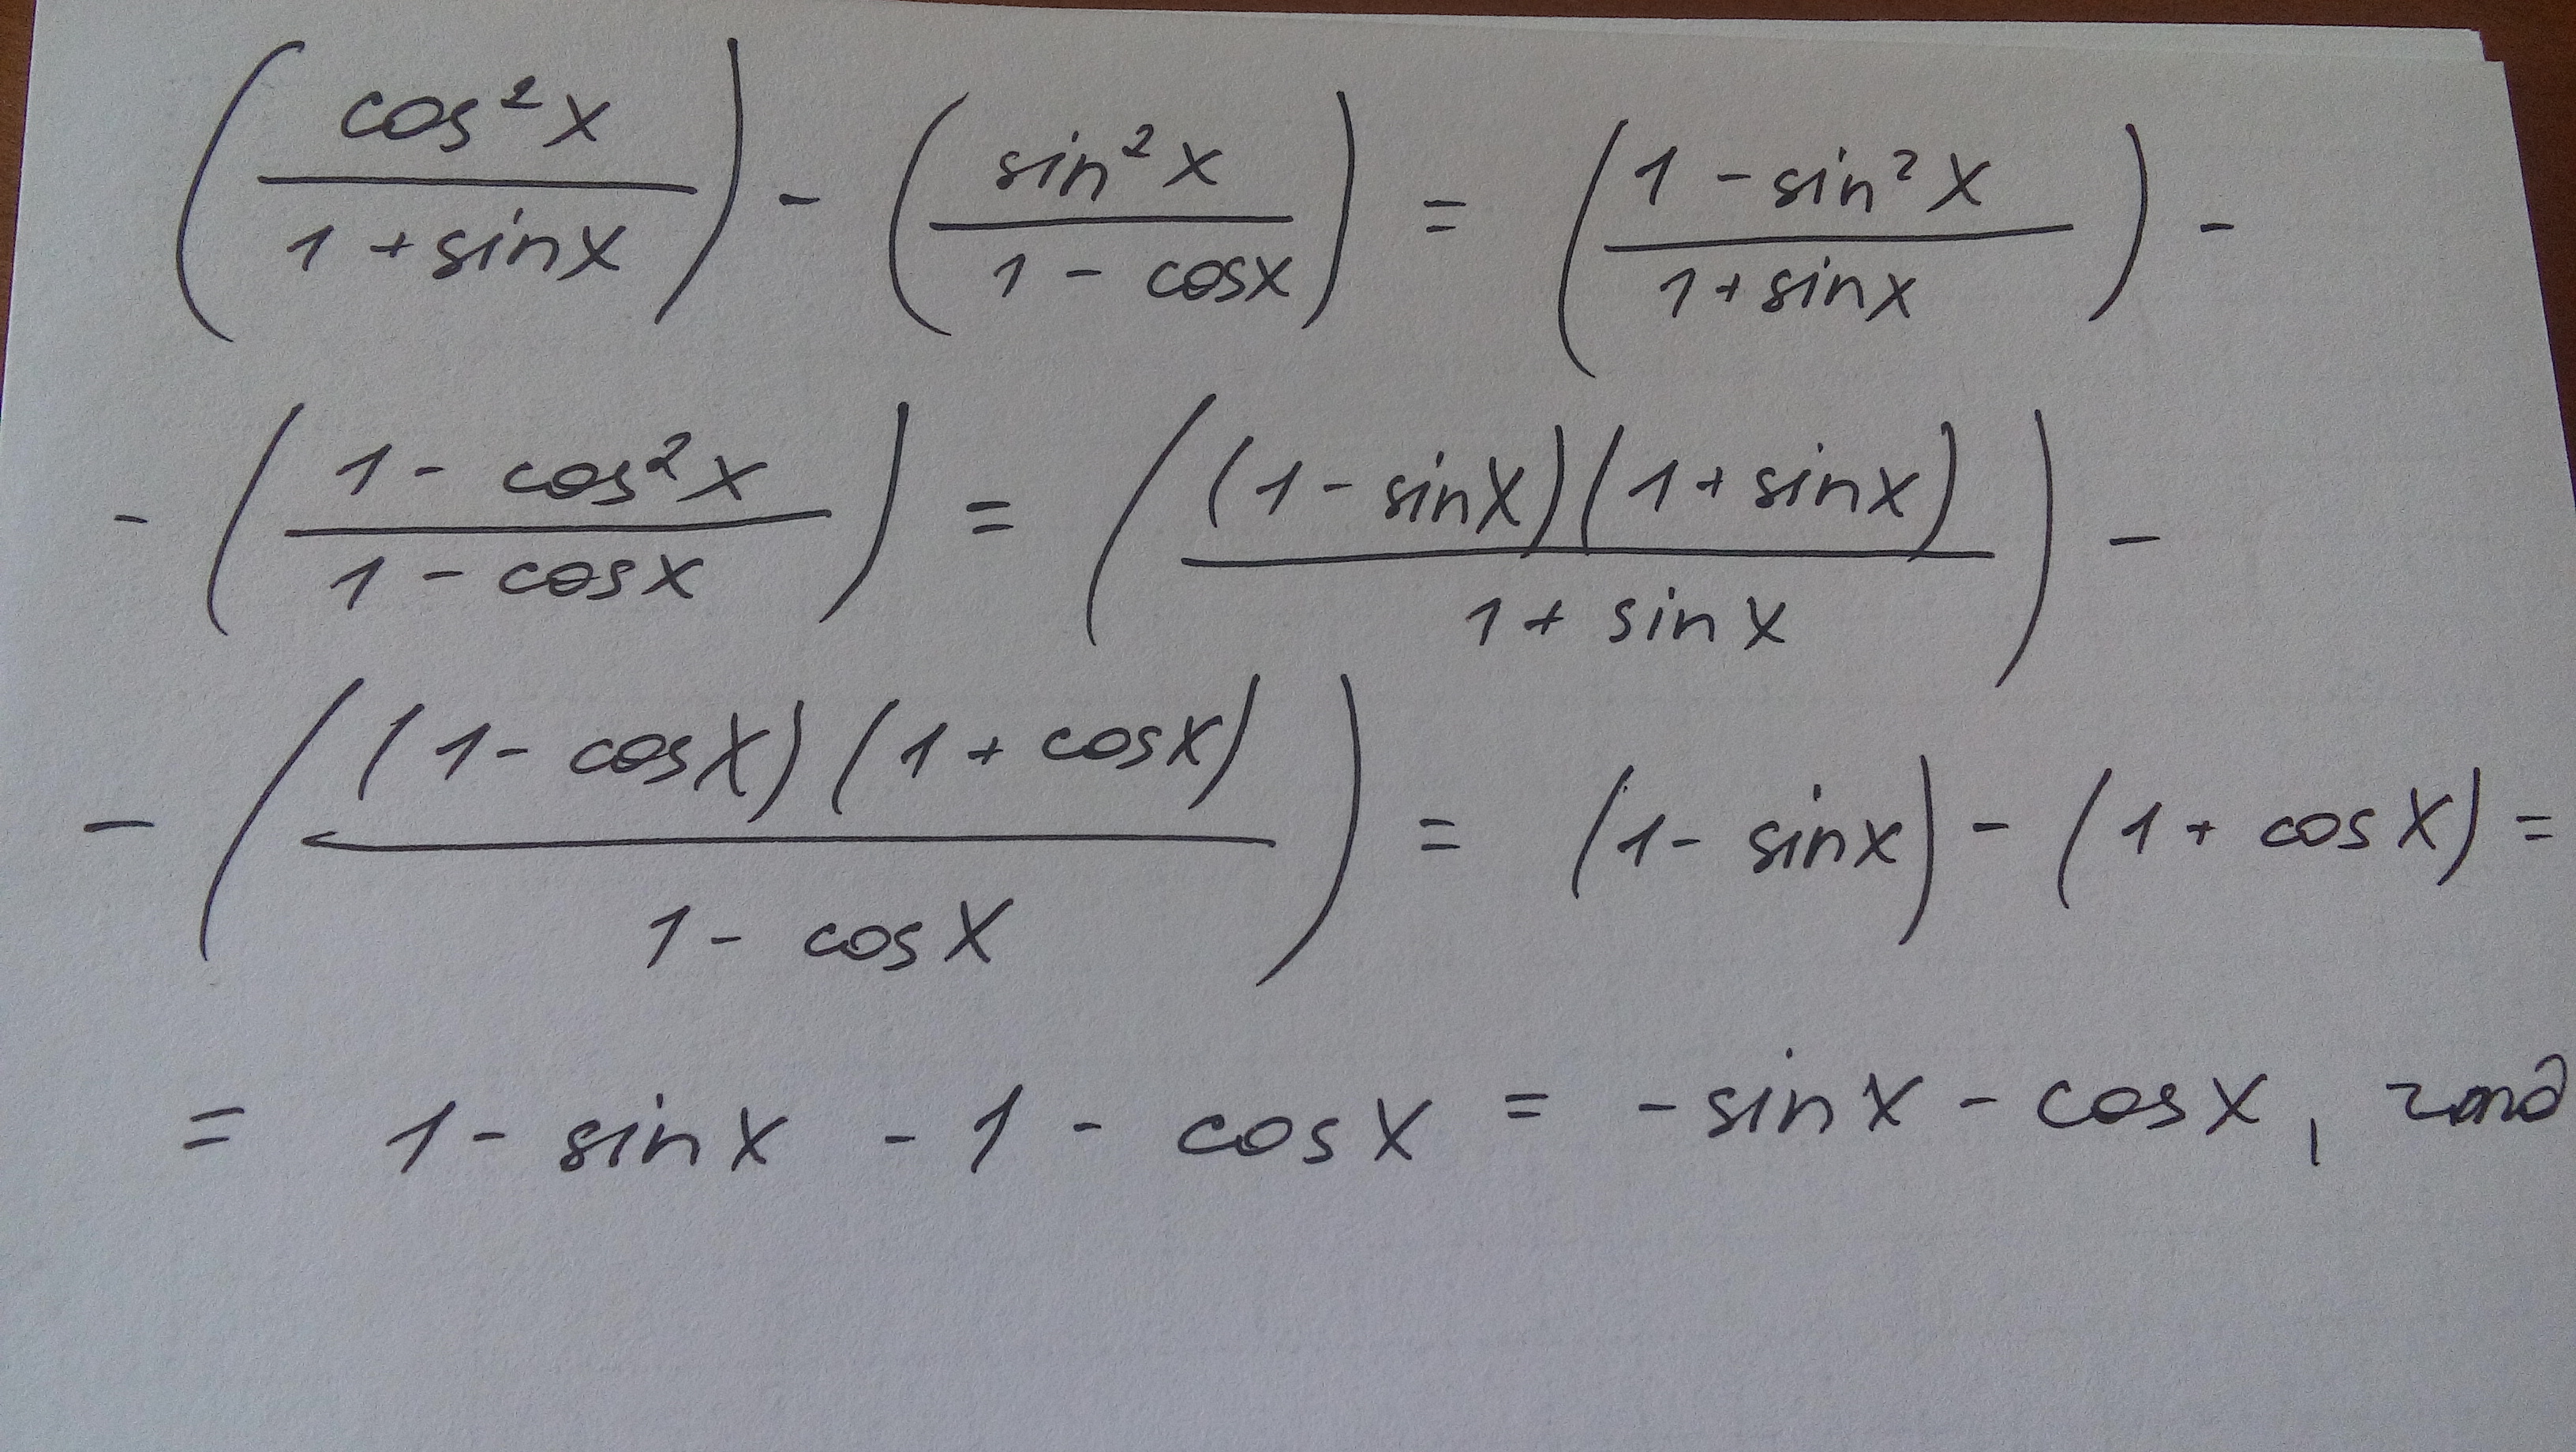 (cos²x / 1 + sinx) - (sin²x / 1 - cosx) = (1 - sin²x / 1 + sinx) -
- (1 - cos²x / 1 - cosx) = ((1 - sinx)(1 + sinx) / 1 + sinx) -
- ((1 - cosx)(1 + cosx) / 1 - cosx) = (1 - sinx) - (1 + cosx) =
= 1 - sinx - 1 - cosx = - sinx - cosx,